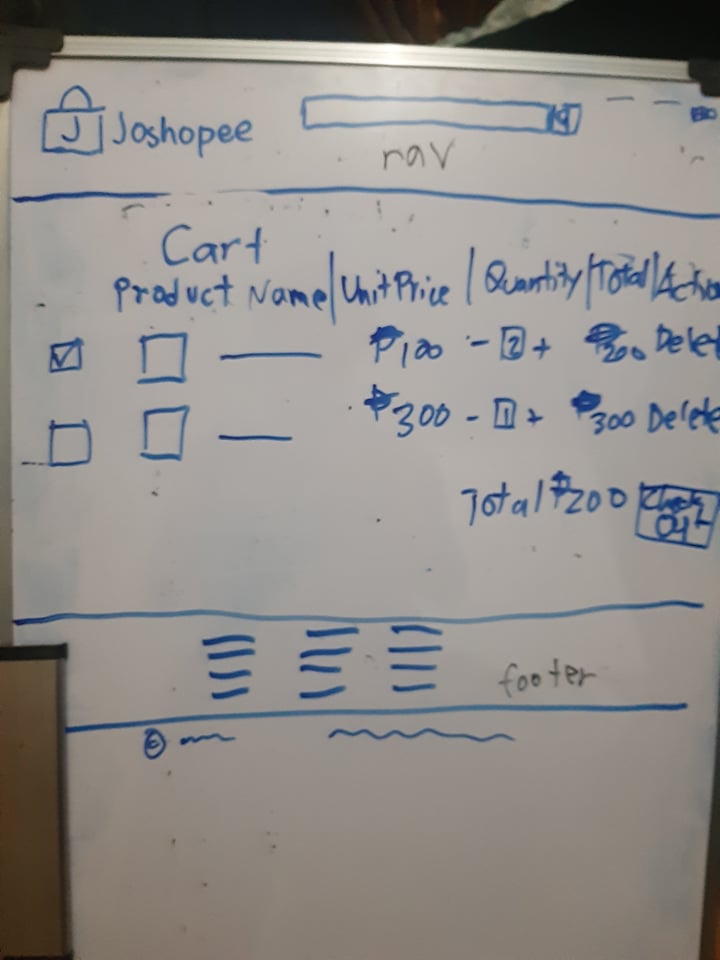 J Joshopee
nav
Cart
Product Name | Unit Price | Quantity | Total | Actio
₱100 - 2 + ₱200 Delet
₱300 - 1 + ₱300 Delete
Total ₱200 Check Out
footer
©